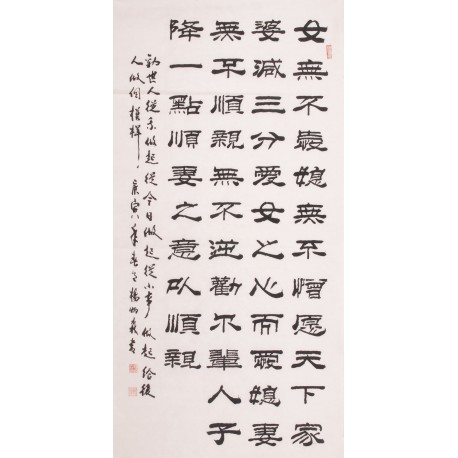 女無不愛媳無不憎愿天下家
婆減三分愛女之心而愛媳妻
無不順親無不逆勸尔輩人子
降一點順妻之意以順親
勸世人從做起從今日做起從小事做起給後
人做個樣庚寅年春月楊書